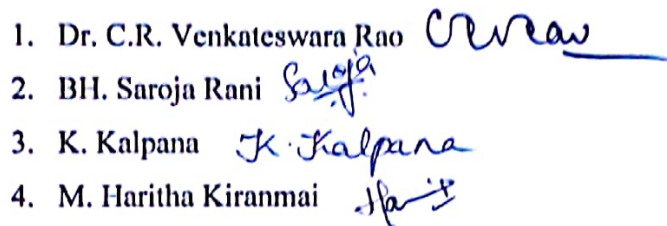 1. Dr. C.R. Venkateswara Rao CRVRao
2. BH. Saroja Rani Saroja
3. K. Kalpana K. Kalpana
4. M. Haritha Kiranmai